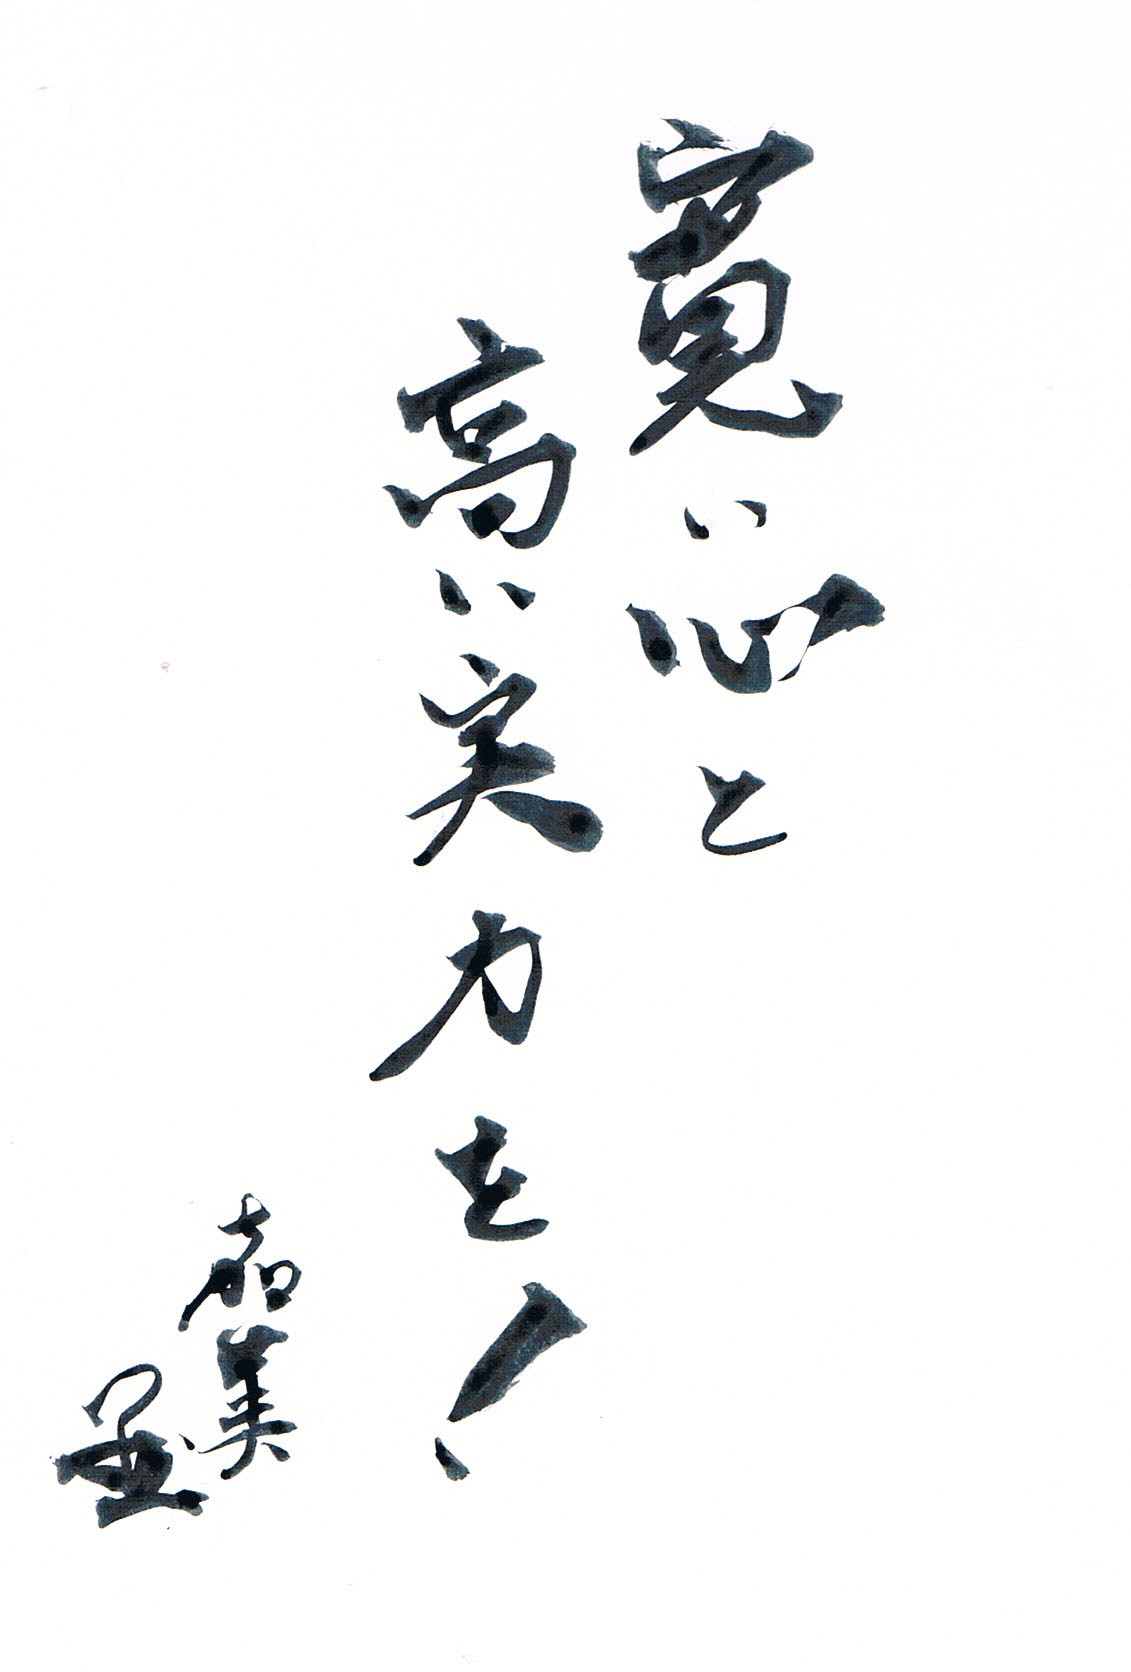 寛い心と
高い実力を!
嘉美